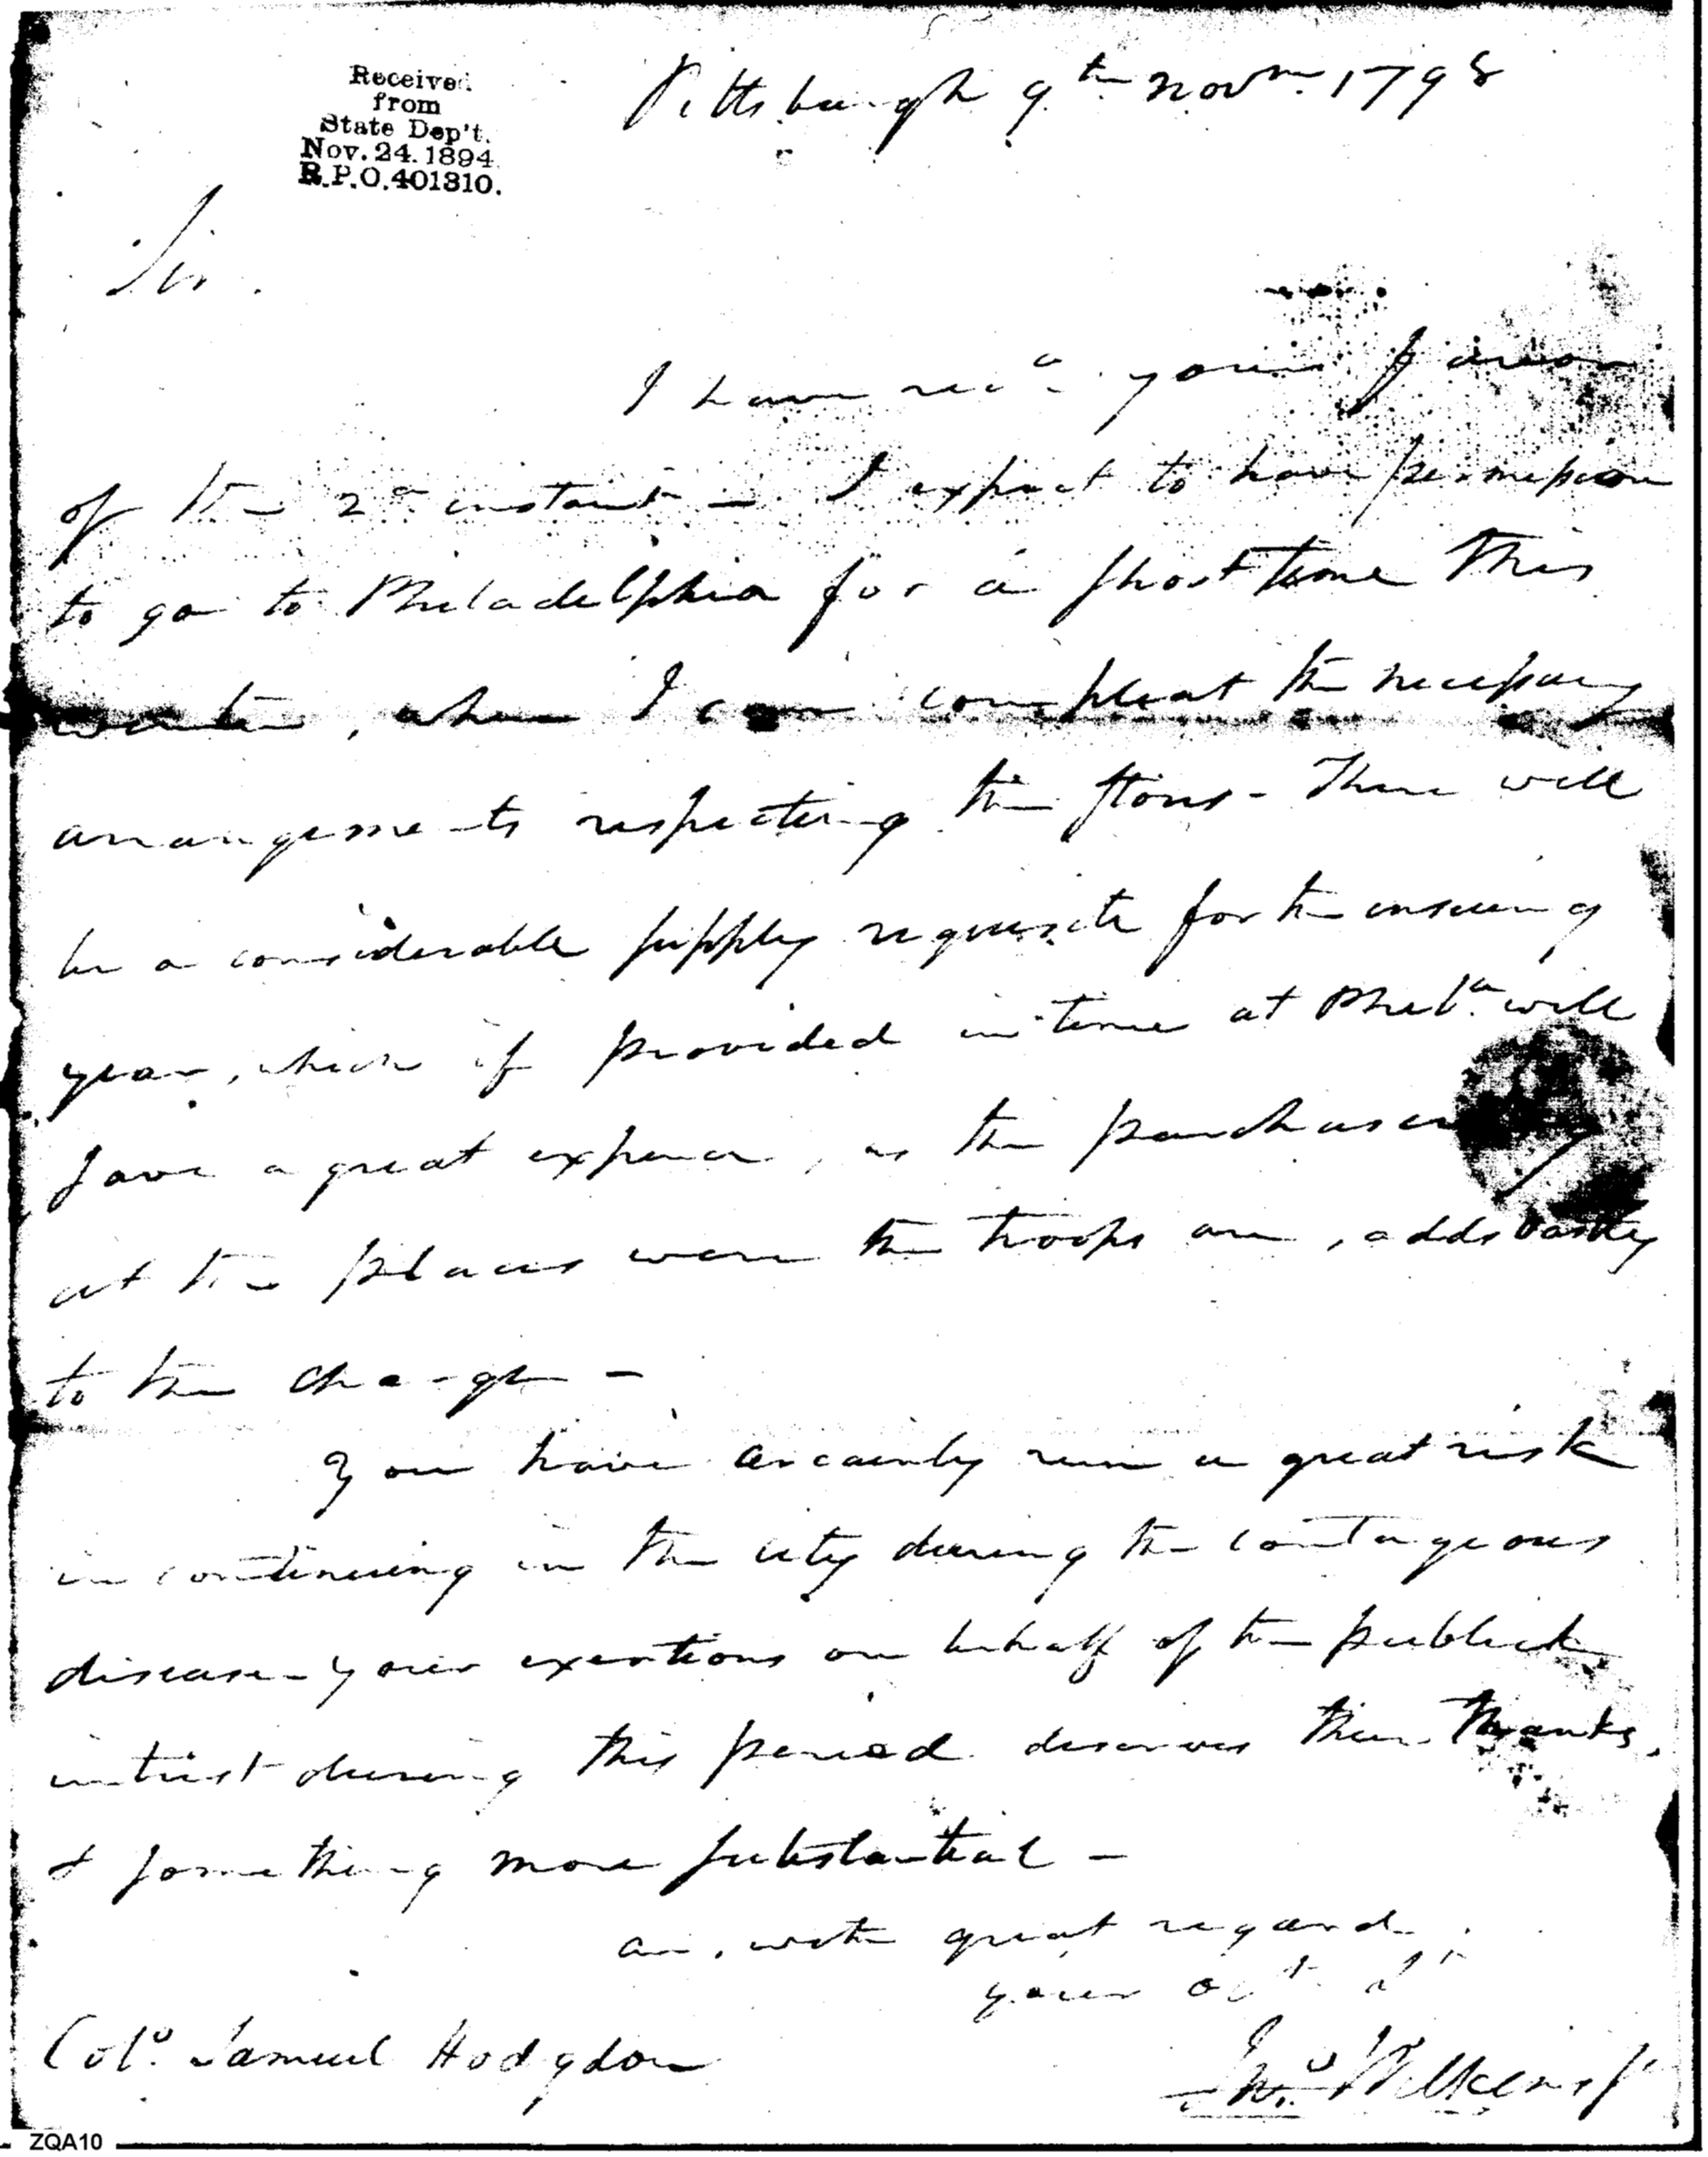 Received
from
State Dep't.
Nov. 24. 1894
R.P.O. 401310.
Pittsburgh 9th Novm. 1798
Sir.
I have recd. your favor
of the 2d instant - I expect to have permission
to go to Philadelphia for a short time this
winter, when I can compleat the necessary
arrangements respecting the stores - There will
be a considerable supply requisite for the ensuing
year, which if provided in time at Phila. will
save a great expence, as the purchasing
at the places were the troops are, adds vastly
to the charge -
You have certainly run a great risk
in continuing in the city during the contageous
disease - your exertions on behalf of the publick
intrest during this period deserves their thanks,
& something more substantial -
am, with great regard
your obt. st
Jno. Wilkins Jr
Colo. Samuel Hodgdon
ZQA10